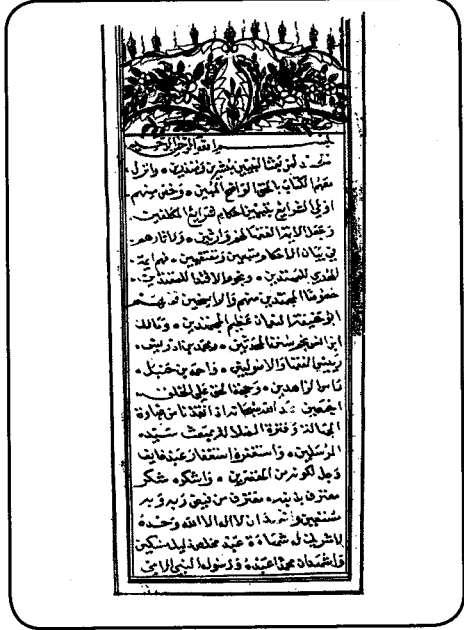 بسم الله الرحمن الرحيم
نحمد لمن بعث النبيين مبشرين ومنذرين وانزل
معهم الكتاب بالحق الواضح المبين وخص منهم
اولي الشرايع بتبيين احكام شرايع المكلفين
وجعل الايمة الفقهاء لهم وارثين ولاثارهم
في بيان الاحكام متبعين ومقتفين فهم ايمة
الهدى للمهتدين ونجوم الاقتدا للمقتدين
خصوصا المجتدين منهم والراسخين
ابو حنيفة النعمان عظيم المجتهدين ومالك
ابن انس نجم سنن المحدثين ومحمد بن ادريس
رييس الفقها والاصوليين واحمد بن حنبل
الزاهدين وحجة الحق على الخلق
اجمعين الله سبحانه ان انقذنا من عبادة
الجهالة وفترة الضلالة بمبعث سيد
المرسلين واستغفره استغفار عبد خايف
وجل لكونه من المقتفرين واشكره شكر
معترف بذنبه مغترف من فيض ربه وبه
مستعين ان لا اله الا الله وحده
لا شريك له شهادة عبد مخلص ذليل مسكين
واشهد ان محمدا عبده ورسوله النبي الامي